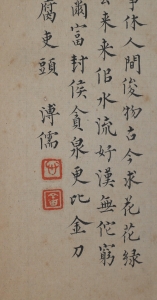 事休人間俊物古今求花花綠
去來來但水流好漢無佗窮
爾富封侯貪泉更比金刀
腐吏頭 溥儒